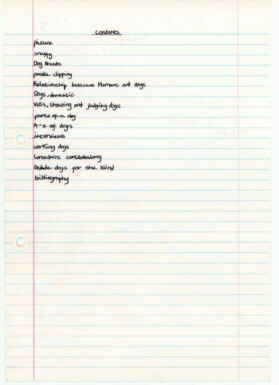 contents
picture
Dog Breeds
poodle clipping
Relationship between Humans and dogs
Dogs, domestic
Vets, Showing and judging dogs
parts of a dog
A-z of dogs
working dogs
Guide dogs for the blind
bibliography